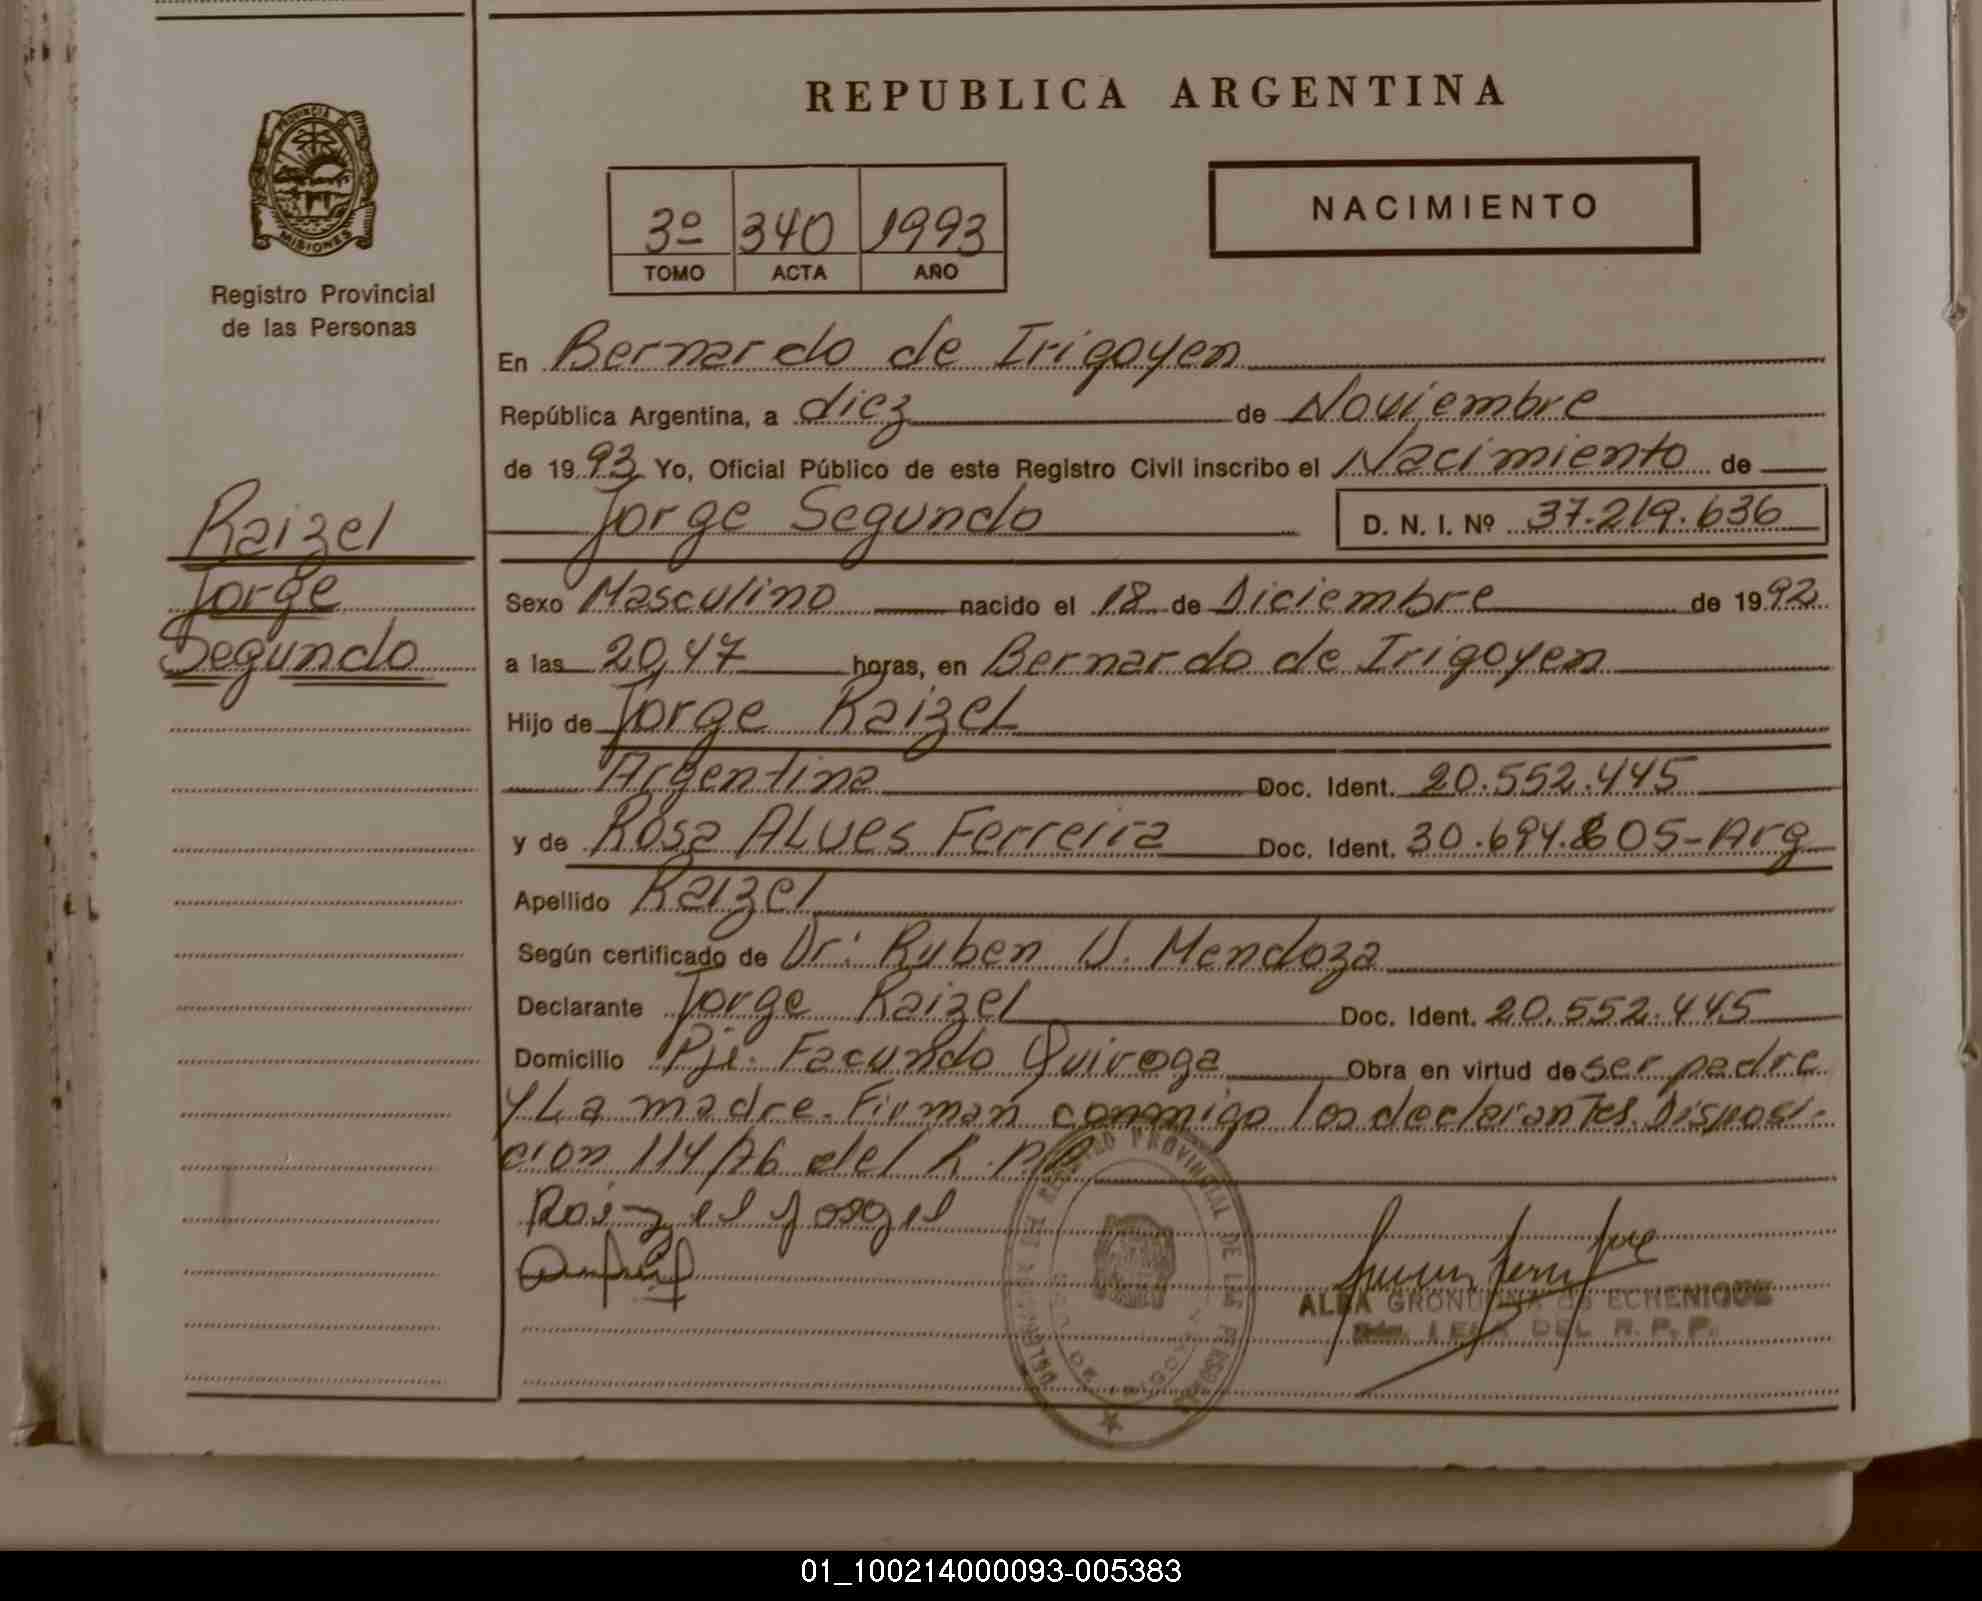 REPUBLICA ARGENTINA
PROVINCIA DE
MISIONES
Registro Provincial
de las Personas
3º 340 1993
TOMO ACTA AÑO
NACIMIENTO
Raizel
Jorge
Segundo
En Bernardo de Irigoyen
República Argentina, a diez de Noviembre
de 1993 Yo, Oficial Público de este Registro Civil inscribo el Nacimiento de
Jorge Segundo D. N. I. Nº 37.219.636
Sexo Masculino nacido el 18 de Diciembre de 1992
a las 20,47 horas, en Bernardo de Irigoyen
Hijo de Jorge Raizel
Argentina Doc. Ident. 20.552.445
y de Rosa ALves Ferreira Doc. Ident. 30.694.805-Arg
Apellido Raizel
Según certificado de Dr: Ruben U. Mendoza
Declarante Jorge Raizel Doc. Ident. 20.552.445
Domicilio Pje. Facundo Quiroga Obra en virtud de ser padre
y La madre. Firman conmigo los declarantes. Disposi-
cion 114/76 del R.P.P.
Raizel Jorgel
REGISTRO PROVINCIAL DE LAS PERSONAS
DE IRIGOYEN
ALBA GRONDONA de ECHENIQUE
DEL R. P. P.
01_100214000093-005383